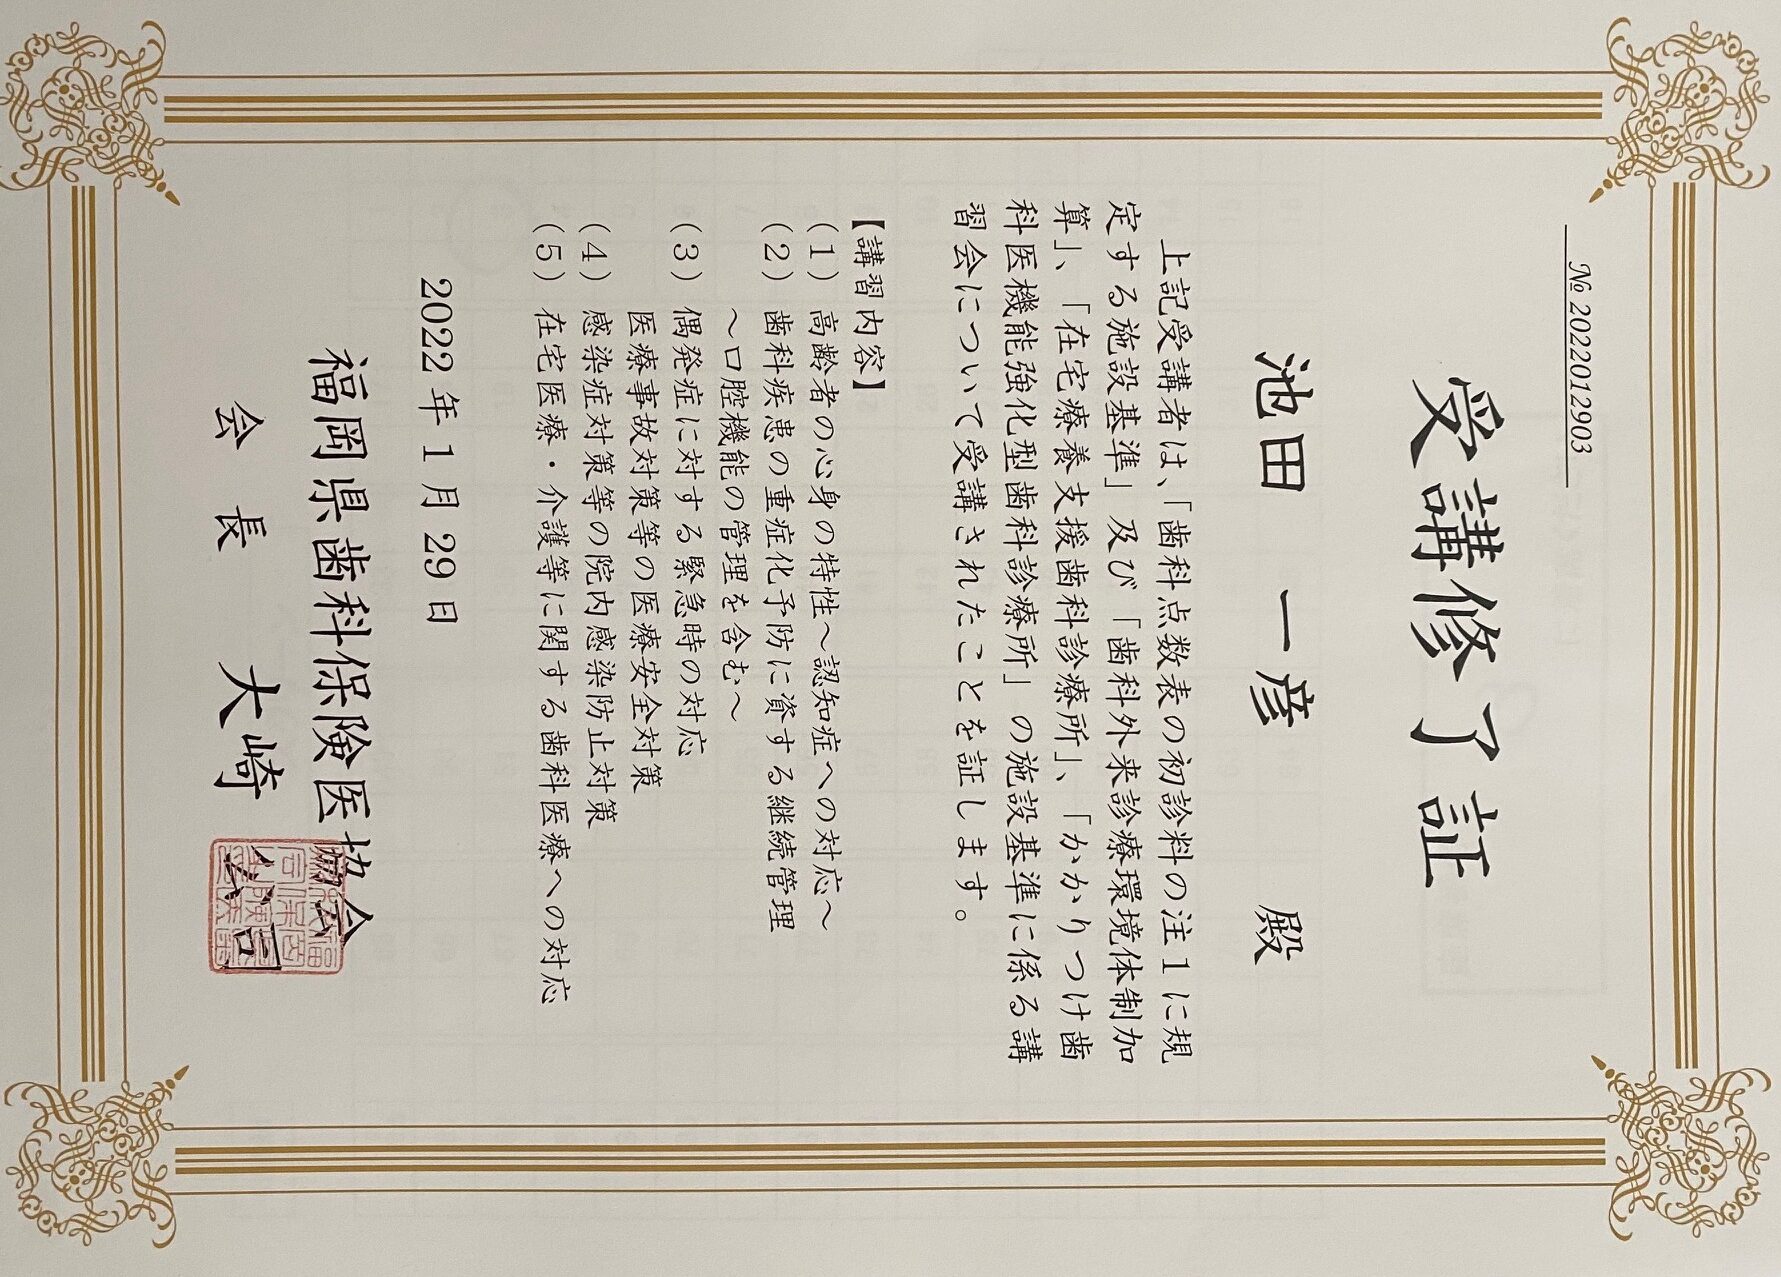 № 2022012903
受講修了証
池田 一彦 殿
上記受講者は、「歯科点数表の初診料の注１に規
定する施設基準」及び「歯科外来診療環境体制加
算」、「在宅療養支援歯科診療所」、「かかりつけ歯
科医機能強化型歯科診療所」の施設基準に係る講
習会について受講されたことを証します。
【講習内容】
（１）高齢者の心身の特性～認知症への対応～
（２）歯科疾患の重症化予防に資する継続管理
～口腔機能の管理を含む～
（３）偶発症に対する緊急時の対応
医療事故対策等の医療安全対策
（４）感染症対策等の院内感染防止対策
（５）在宅医療・介護等に関する歯科医療への対応
2022 年 1 月 29 日
福岡県歯科保険医協会
会 長 大崎 公司